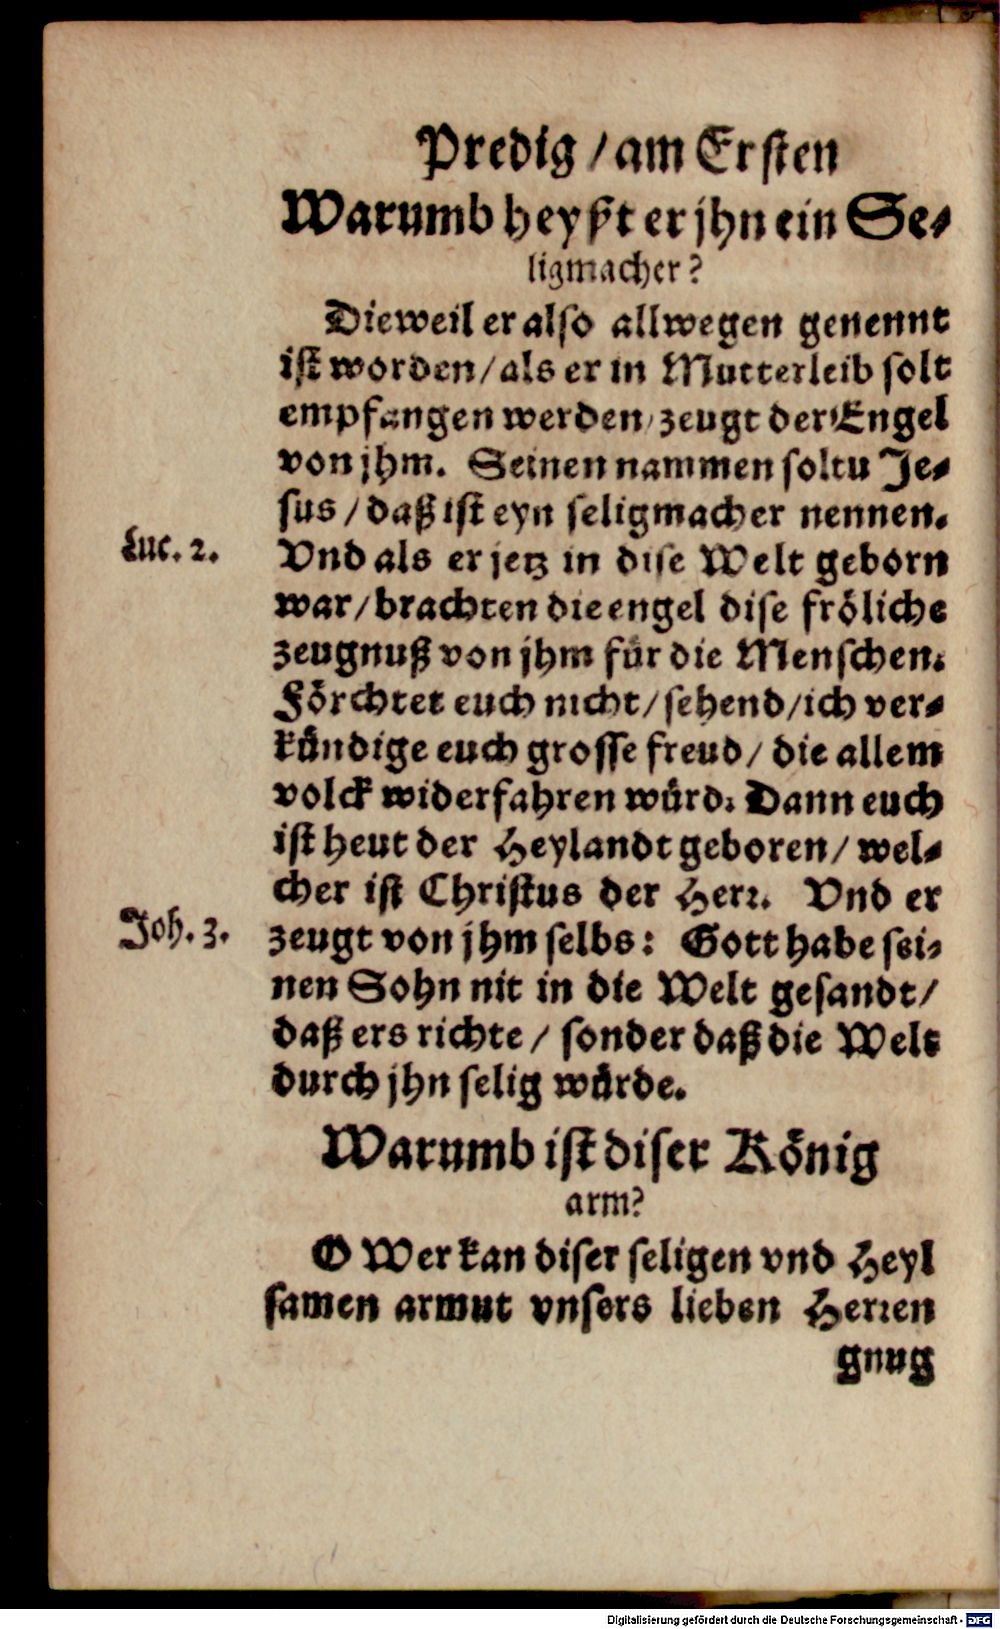 Predig / am Ersten
Warumb heyßt er jhn ein Se-
ligmacher?
Dieweil er also allwegen genennt
ist worden / als er in Mutterleib solt
empfangen werden / zeugt der Engel
von jhm. Seinen nammen soltu Je-
sus / daß ist eyn seligmacher nennen.
Luc. 2.
Vnd als er jetz in dise Welt geborn
war / brachten die engel dise fröliche
zeugnuß von jhm für die Menschen.
Förchtet euch nicht / sehend / ich ver-
kündige euch grosse freud / die allem
volck widerfahren würd. Dann euch
ist heut der Heylandt geboren / wel-
cher ist Christus der Herr. Vnd er
Joh. 3.
zeugt von jhm selbs: Gott habe sei-
nen Sohn nit in die Welt gesandt /
daß ers richte / sonder daß die Welt
durch jhn selig würde.
Warumb ist diser König
arm?
O Wer kan diser seligen vnd Heyl
samen armut vnsers lieben Herren
gnug
Digitalisierung gefördert durch die Deutsche Forschungsgemeinschaft - DFG